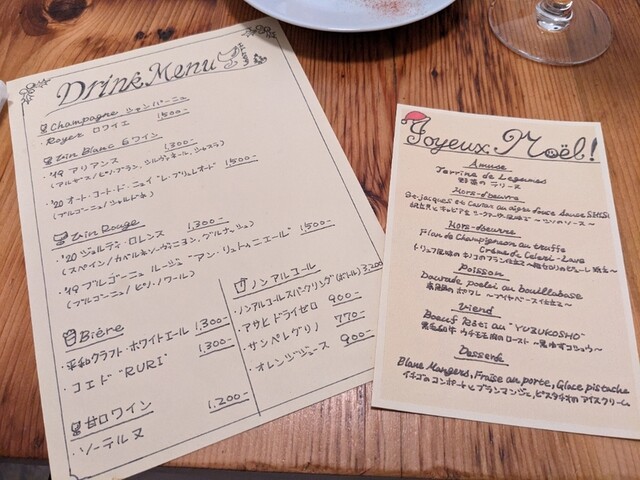 Drink Menu
Champagne シャンパーニュ
・Royer ロワイエ 1500-
Vin Blanc 白ワイン
・'19 アリアンス 1,300-
(アルザス/ピノブラン、シルヴァネール、シャスラ)
・'20 オート・コート・ド・ニュイ "レ・プリュレオード" 1500-
(ブルゴーニュ/シャルドネ)
Vin Rouge
・'20 ジョルディ・ロレンス 1,300-
(スペイン/カベルネソーヴィニヨン、グルナッシュ)
・'19 ブルゴーニュ ルージュ "アン・リュトゥニエール" 1500-
(ブルゴーニュ/ピノ・ノワール)
Bière
・平和クラフト・ホワイトエール 1,300-
・コエド "RURI" 1,300-
甘口ワイン
・ソーテルヌ 1,200-
ノンアルコール
・ノンアルコールスパークリング(ボトル) 3,200
・アサヒドライゼロ 900-
・サンペレグリノ 770-
・オレンジジュース 900-
Joyeux Noël!
Amuse
Terrine de Legumes
野菜のテリーヌ
Hors-d'oeuvre
St-jacques et Caviar au aigre douce Sauce SHISO
Hors-d'oeuvre
Flan de Champignon au truffe
Crème de Celeri-Lave
Poisson
Daurade poelei au bouillabase
真鯛のポワレ ～ブイヤベース仕立～
Viend
Boeuf Rôti au "YUZUKOSHO"
黒毛和牛 ウチモモ肉のロースト ～黒ゆずコショウ～
Desserde
Blanc Mangers, Fraise au porte, Glace pistache
イチゴのコンポートとブランマンジェ、ピスタチオのアイスクリーム